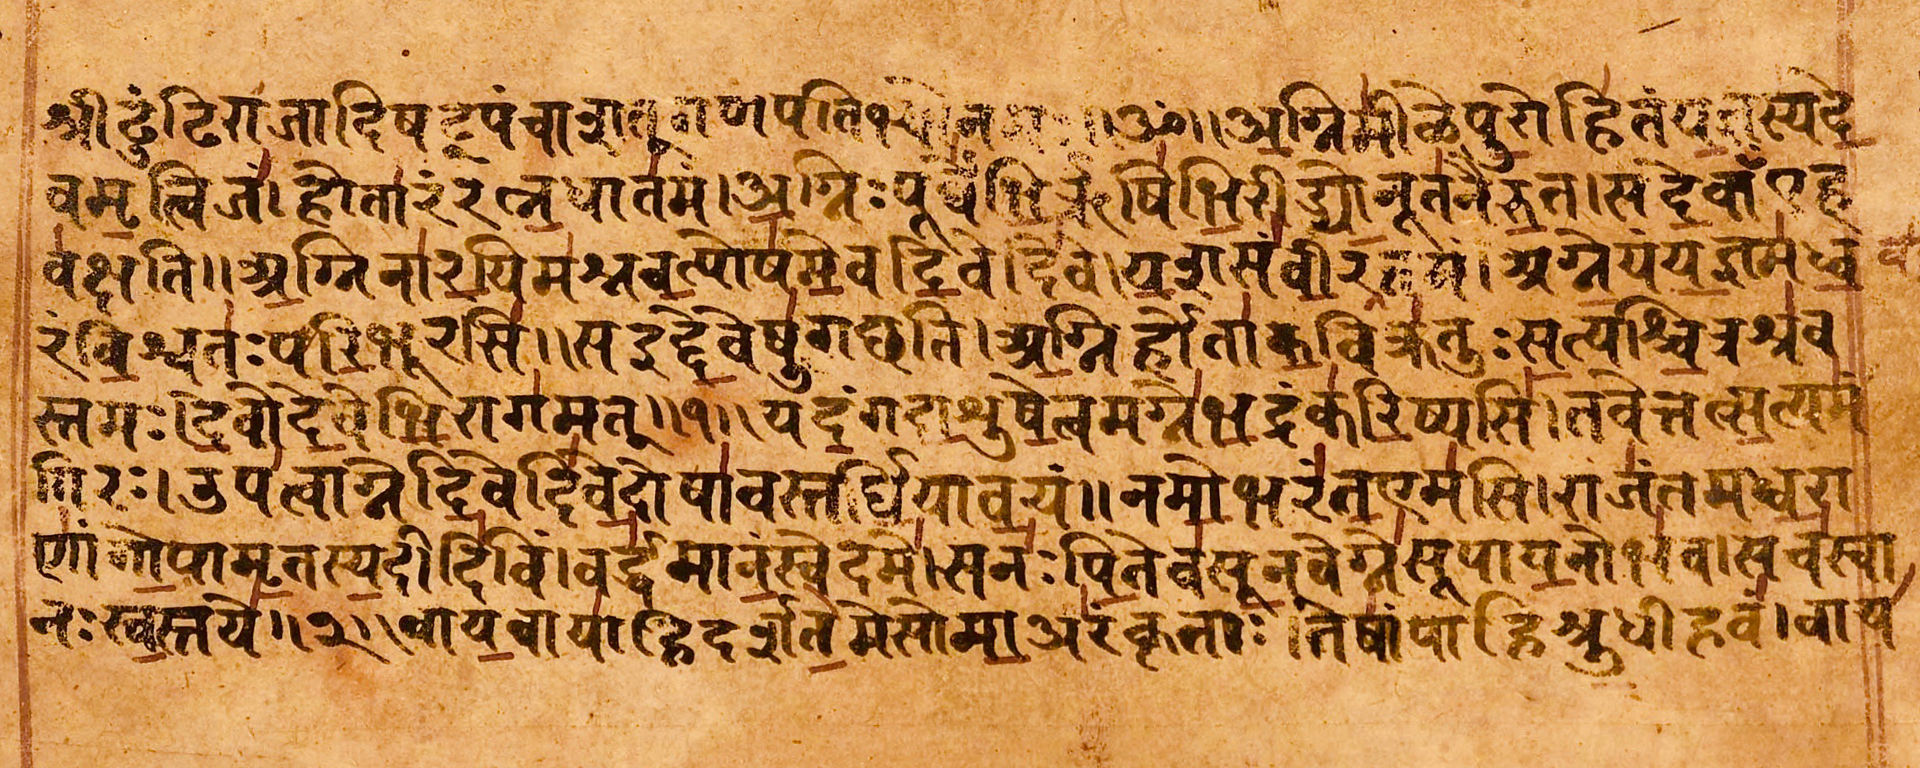 श्रीढुंढिराजादिषट्पंचाशत्गणपतिभ्योनमः॥ॐ॥अग्निमीळेपुरोहितंयज्ञस्यदे
वमृत्विजं।होतारंरत्नधातमं।अग्निःपूर्वेभिर्ऋषिभिरीड्योनूतनैरुत।सदेवाँएह
वक्षति॥अग्निनारयिमश्नवत्पोषमेवदिवेदिवे।यशसंवीरवत्तमं।अग्नेयंयज्ञमध्व
रंविश्वतःपरिभूरसि॥सइद्देवेषुगछति।अग्निर्होताकविक्रतुःसत्यश्चित्रश्रव
स्तमः।देवोदेवेभिरागमत्॥१॥यदंगदाशुषेत्वमग्नेभद्रंकरिष्यसि।तवेत्तत्सत्यमं
गिरः।उपत्वाग्नेदिवेदिवेदोषावस्तर्धियावयं॥नमोभरंतएमसि।राजंतमध्वरा
णांगोपामृतस्यदीदिविं।वर्द्धमानंस्वेदमे।सनःपितेवसूनवेग्नेसूपायनोभव।सचस्वा
नःस्वस्तये॥२॥वायवायाहिदर्शतमेसोमाअरंकृताः।तेषांपाहिश्रुधीहवं।वाय